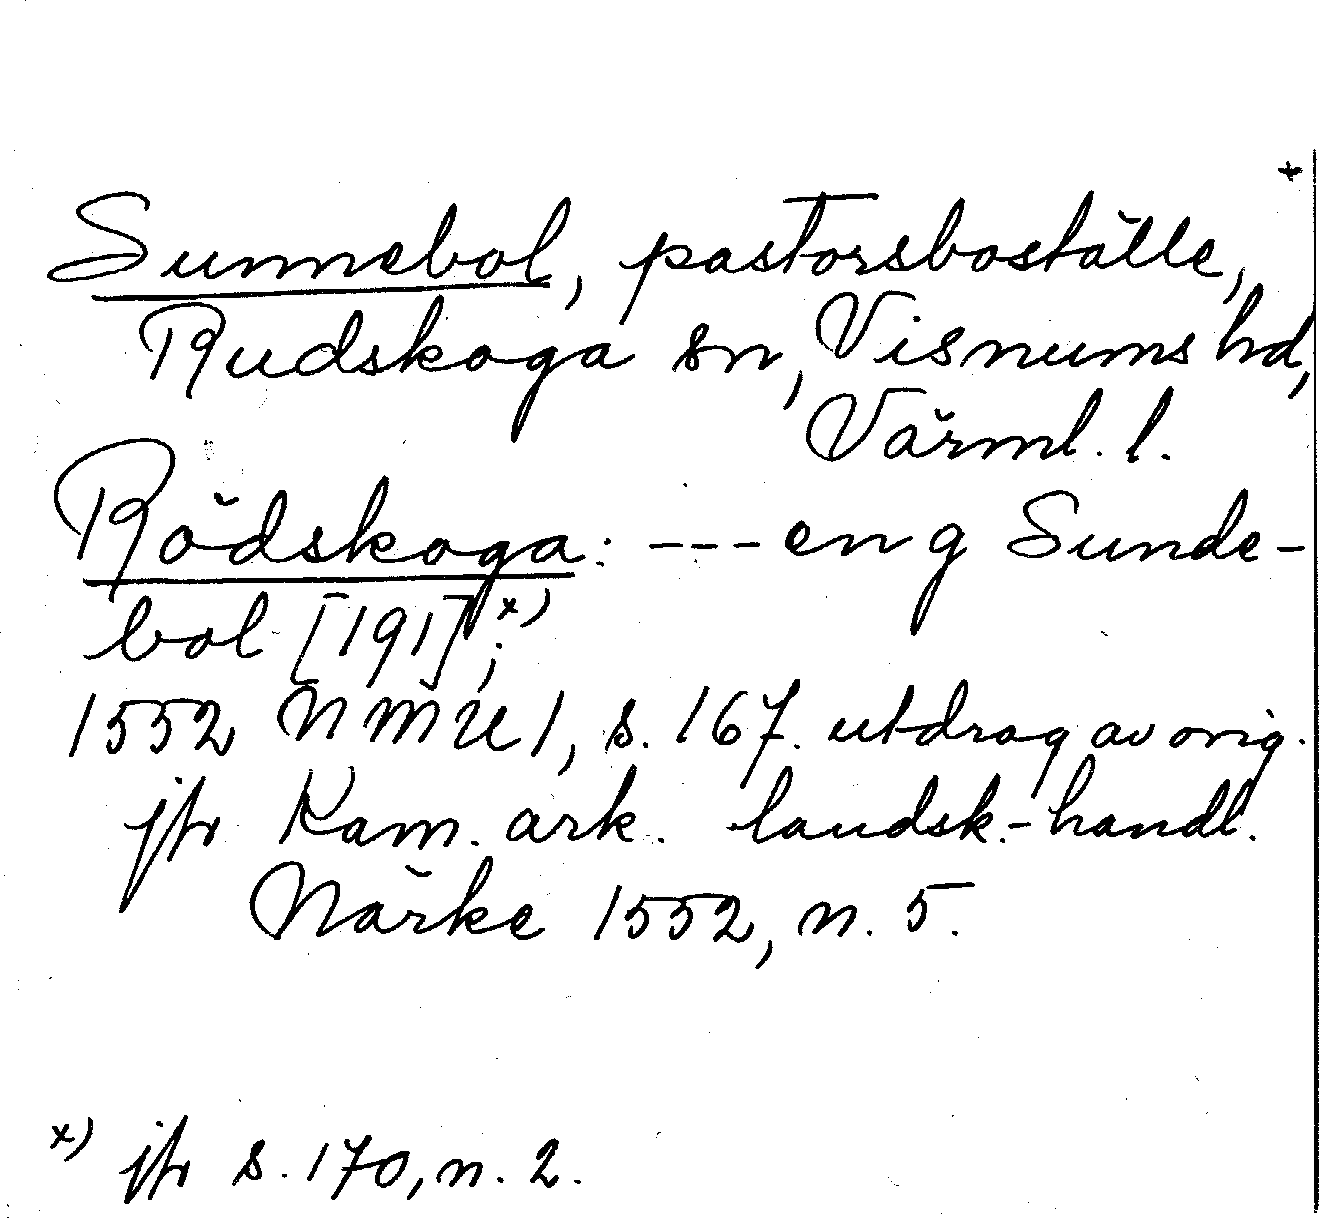 +
Sunnebol, pastorsboställe,
Rudskoga sn, Visnums hd,
Värml. l.
Rödskoga: --- en g Sunde-
bol [191]x);
1552 NMU 1, s. 167. utdrag av orig.
jfr Kam. ark. landsk.-handl.
Närke 1552, n. 5.
x) jfr s. 170, n. 2.